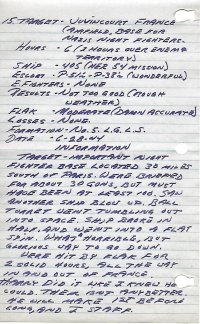 15. TARGET - JUVINCOURT FRANCE
(AIRFIELD, BASE FOR
NAZIS NIGHT FIGHTERS.
HOURS - 6 (3 HOURS OVER ENEMY
TERRITORY)
SHIP - 485 (HER 54 MISSION)
ESCORT - P-51's - P-38's (WONDERFUL)
E. FIGHTERS - NONE
RESULTS - NOT TOO GOOD (ROUGH
WEATHER)
FLAK - MODERATE (DAMN ACCURATE)
LOSSES - NONE.
FORMATION - No. 5. L.G. L.S.
DATE - 6-28-44
INFORMATION
TARGET - IMPORTANT NIGHT
FIGHTER BASE LOCATED 30 MILES
SOUTH OF PARIS. WERE BRIEFED
FOR ABOUT 30 GUNS, BUT MUST
HAVE BEEN AT LEAST 100. SAW
ANOTHER SHIP BLOW UP. BALL
TURRET WENT TUMBLING OUT
INTO SPACE. SHIP BROKE IN
HALF, AND WENT INTO A FLAT
SPIN. WHAT HORRIBLE, BUT
GLORIOUS WAY TO GO DOWN.
WERE HIT BY FLAK FOR
2 SOLID HOURS. ALL THE WAY
IN AND OUT OF FRANCE.
HARLY DID IT LIKE I KNEW HE
COULD. THERE ANY BETTER
HE WILL MAKE 1ST BEFORE
LONG, AND I STAFF.